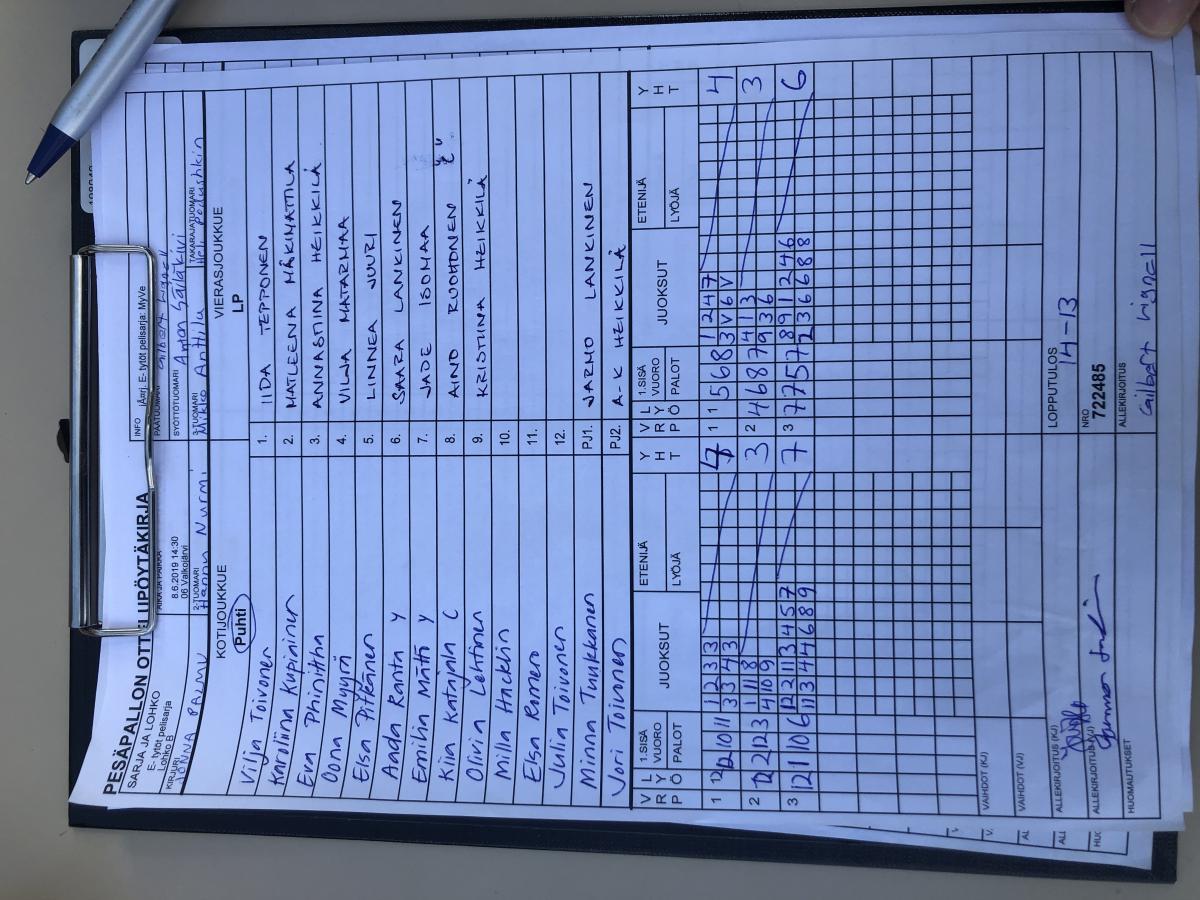 PESÄPALLON OTTELUPÖYTÄKIRJA
SARJA JA LOHKO
E- tytöt pelisarja
Lohko B
KIRJURI
JONNA PALMU
AIKA JA PAIKKA
8.6.2019 14:30
06 Valkojärvi
2-TUOMARI
Nurmi
INFO
E- tytöt pelisarja: MyVe
PÄÄTUOMARI
Gilbert Lignell
SYÖTTÖTUOMARI
Anton Säiläkivi
3-TUOMARI
Mikko Anttila
TAKARAJATUOMARI
KOTIJOUKKUE
Puhti
VIERASJOUKKUE
LP
Vilja Toivonen 1. IIDA TEPPONEN
Karoliina Kupiainen 2. MATLEENA MÄKIMATTILA
Eva 3. ANNASTIINA HEIKKILÄ
Oona Myyrä 4. VILJA MATARMAA
Elsa Pitkänen 5. LINNEA JUURI
Aada Ranta Y 6. SAARA LANKINEN
Emilia Mättö Y 7. JADE ISOMAA
Kiia Katajala C 8. AINO RUOHONEN
Olivia Lehtinen 9. KRISTIINA HEIKKILÄ
Milla Hacklin 10.
Elsa Romero 11.
Julia Toivonen 12.
Minna Tuukkanen PJ1. JARMO LANKINEN
Jori Toivonen PJ2. A-K HEIKKILÄ
V R P L Y Ö 1.SISÄ VUORO PALOT JUOKSUT ETENIJÄ LYÖJÄ Y H T V R P L Y Ö 1.SISÄ VUORO PALOT JUOKSUT ETENIJÄ LYÖJÄ Y H T
1 12 12 10 11 1 2 3 3 1 1 5 6 8 1 2 4 7 4
3 3 4 3 3 V 6 V
2 12 2 12 3 1 1 8 3 2 4 6 8 7 4 1 3 3
4 10 9 9 3 6
3 12 1 10 6 12 12 11 3 4 5 7 7 3 7 7 5 7 8 9 1 2 4 6 6
11 3 4 4 6 8 9 2 3 6 6 8 8
VAIHDOT (KJ)
VAIHDOT (VJ)
ALLEKIRJOITUS (KJ)
LOPPUTULOS
14-13
ALLEKIRJOITUS (VJ)
NRO
722485
HUOMAUTUKSET
ALLEKIRJOITUS
Gilbert Lignell